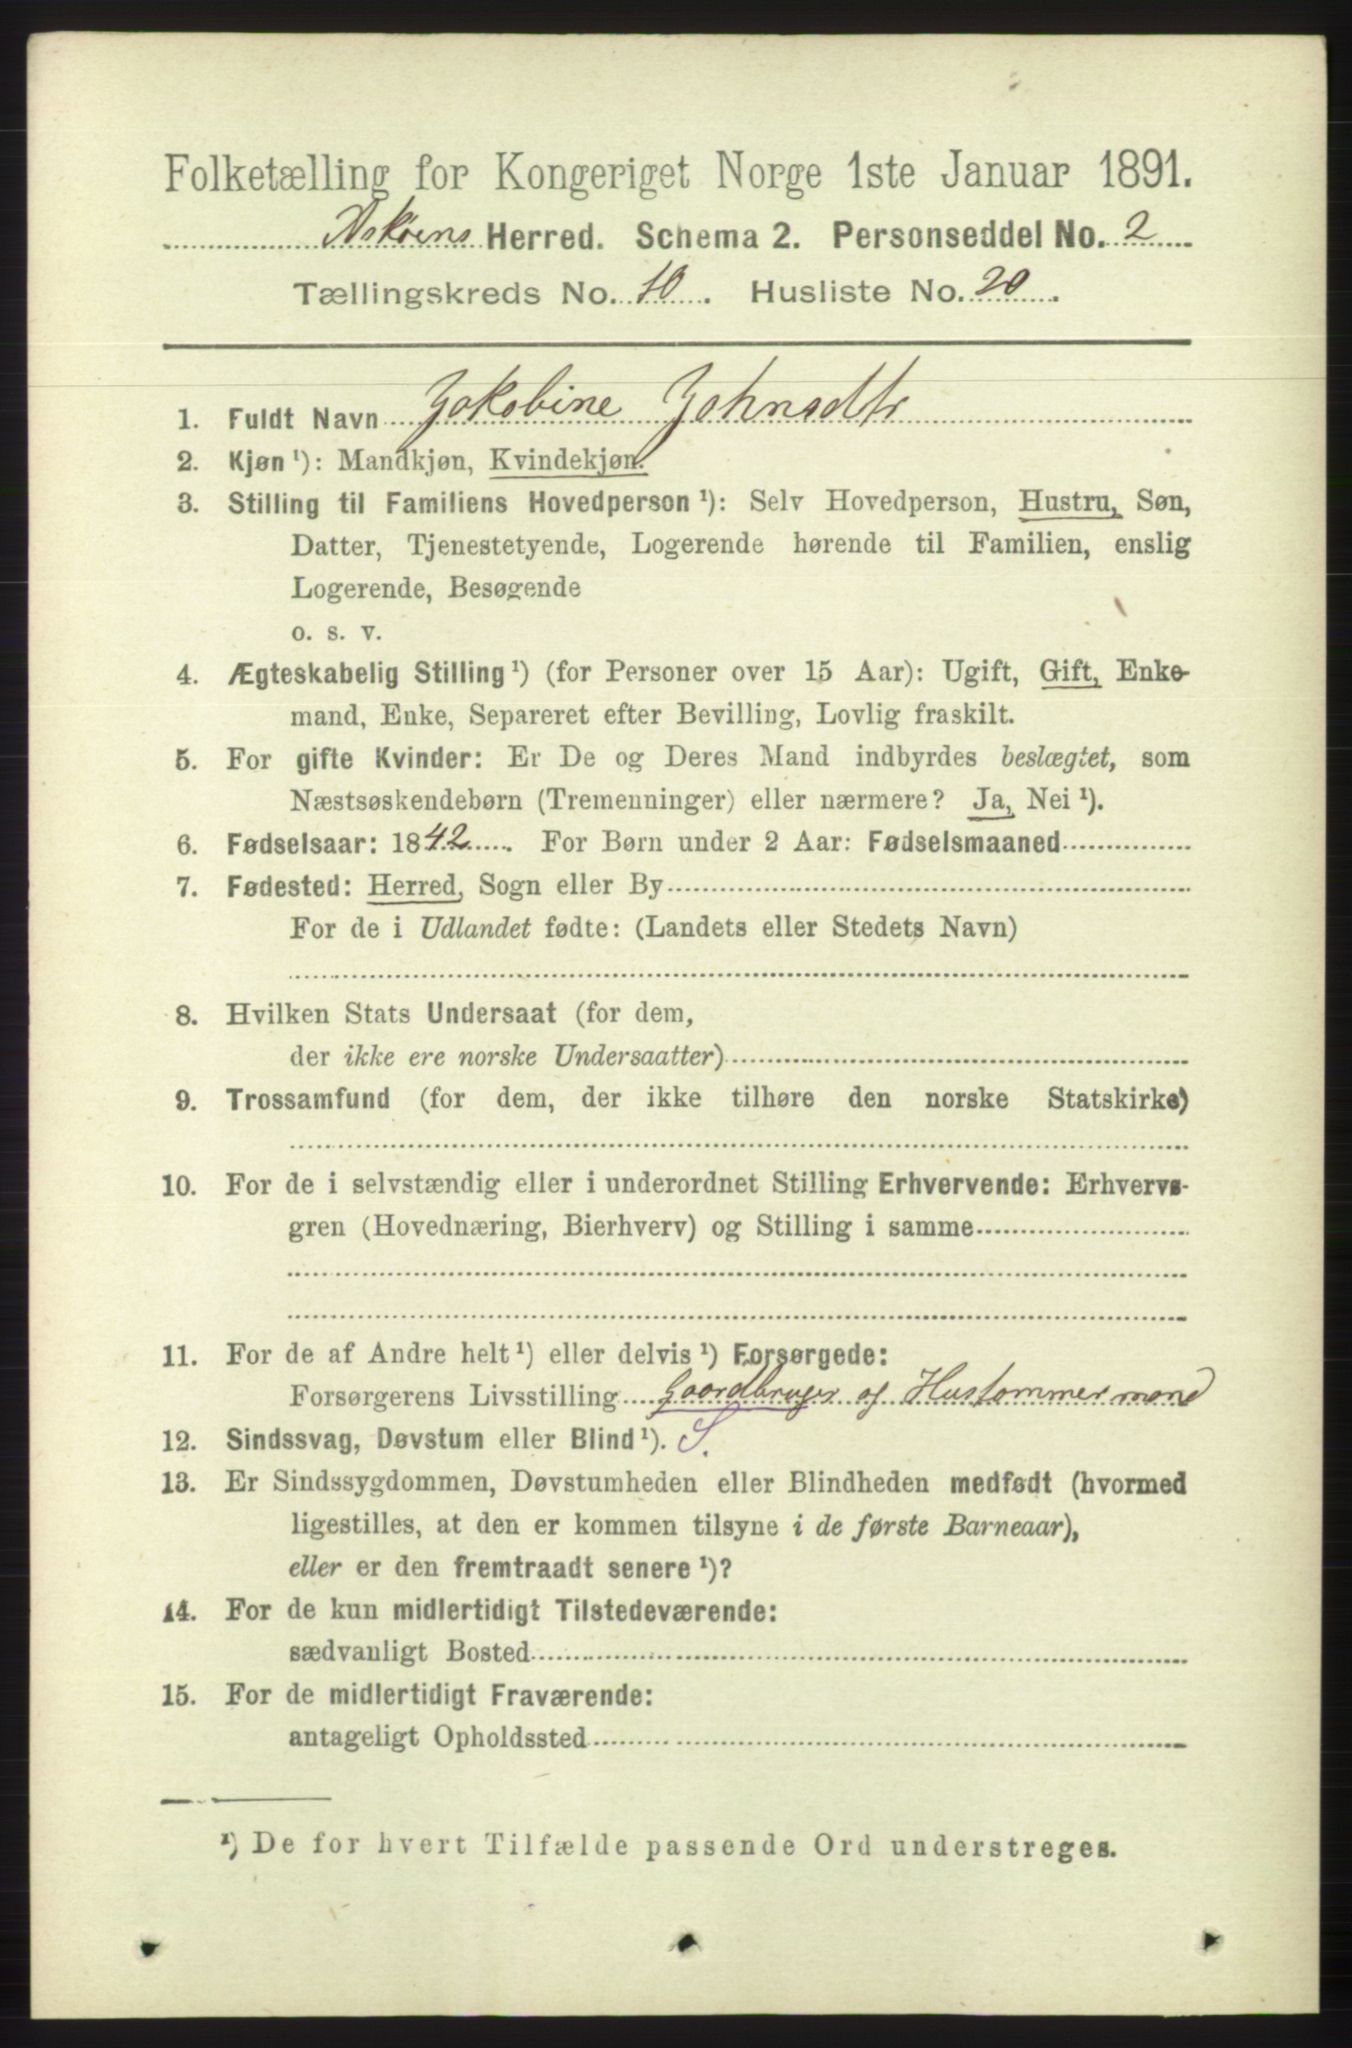 Folketælling for Kongeriget Norge 1ste Januar 1891.
Askøens Herred. Schema 2. Personseddel No. 2
Tællingskreds No. 10. Husliste No. 20.
1. Fuldt Navn Jakobine Johnsdtr
2. Kjøn ¹): Mandkjøn, Kvindekjøn.
3. Stilling til Familiens Hovedperson ¹): Selv Hovedperson, Hustru, Søn,
Datter, Tjenestetyende, Logerende hørende til Familien, enslig
Logerende, Besøgende
o. s. v.
4. Ægteskabelig Stilling ¹) (for Personer over 15 Aar): Ugift, Gift, Enke-
mand, Enke, Separeret efter Bevilling, Lovlig fraskilt.
5. For gifte Kvinder: Er De og Deres Mand indbyrdes beslægtet, som
Næstsøskendebørn (Tremenninger) eller nærmere? Ja, Nei ¹).
6. Fødselsaar: 1842. For Børn under 2 Aar: Fødselsmaaned
7. Fødested: Herred, Sogn eller By
For de i Udlandet fødte: (Landets eller Stedets Navn)
8. Hvilken Stats Undersaat (for dem,
der ikke ere norske Undersaatter)
9. Trossamfund (for dem, der ikke tilhøre den norske Statskirke)
10. For de i selvstændig eller i underordnet Stilling Erhvervende: Erhvervs-
gren (Hovednæring, Bierhverv) og Stilling i samme
11. For de af Andre helt ¹) eller delvis ¹) Forsørgede:
Forsørgerens Livsstilling Gaardbruger og Hustømmermand
12. Sindssvag, Døvstum eller Blind ¹). S.
13. Er Sindssygdommen, Døvstumheden eller Blindheden medfødt (hvormed
ligestilles, at den er kommen tilsyne i de første Barneaar),
eller er den fremtraadt senere ¹)?
14. For de kun midlertidigt Tilstedeværende:
sædvanligt Bosted
15. For de midlertidigt Fraværende:
antageligt Opholdssted
¹) De for hvert Tilfælde passende Ord understreges.